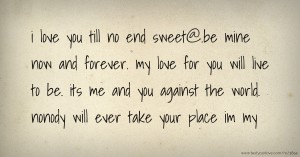 i love you till no end sweet@.be mine
now and forever. my love for you will live
to be. its me and you against the world.
nonody will ever take your place im my